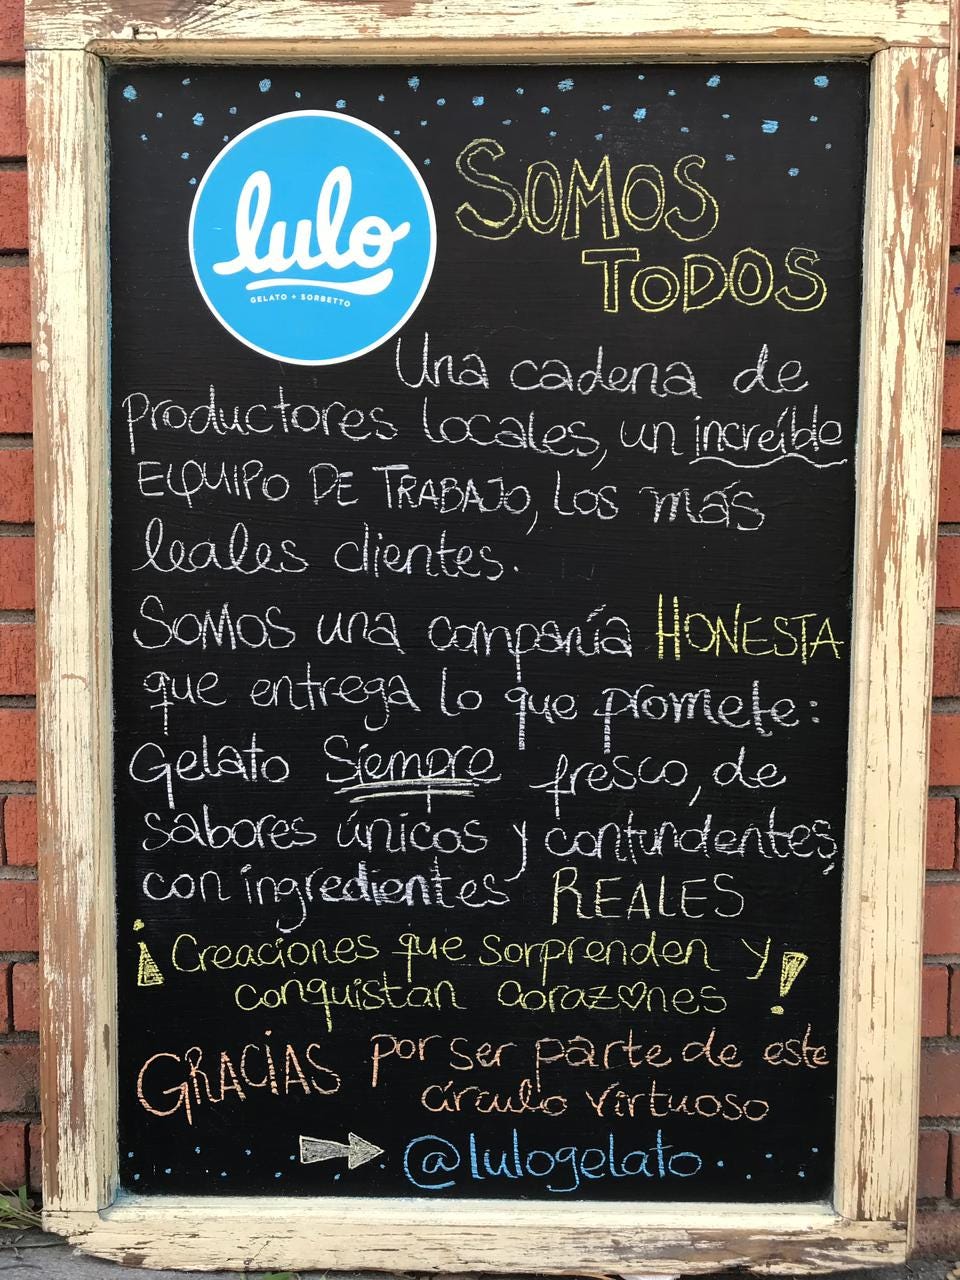 lulo
GELATO + SORBETTO
SOMOS
TODOS
Una cadena de
productores locales, un increíble
EQUIPO DE TRABAJO, los más
leales clientes.
SOMOS una compañía HONESTA
que entrega lo que promete:
Gelato Siempre fresco, de
sabores únicos y contundentes,
con ingredientes REALES
¡Creaciones que sorprenden y
conquistan coraz♡nes!
GRACIAS por ser parte de este
círculo virtuoso
@lulogelato